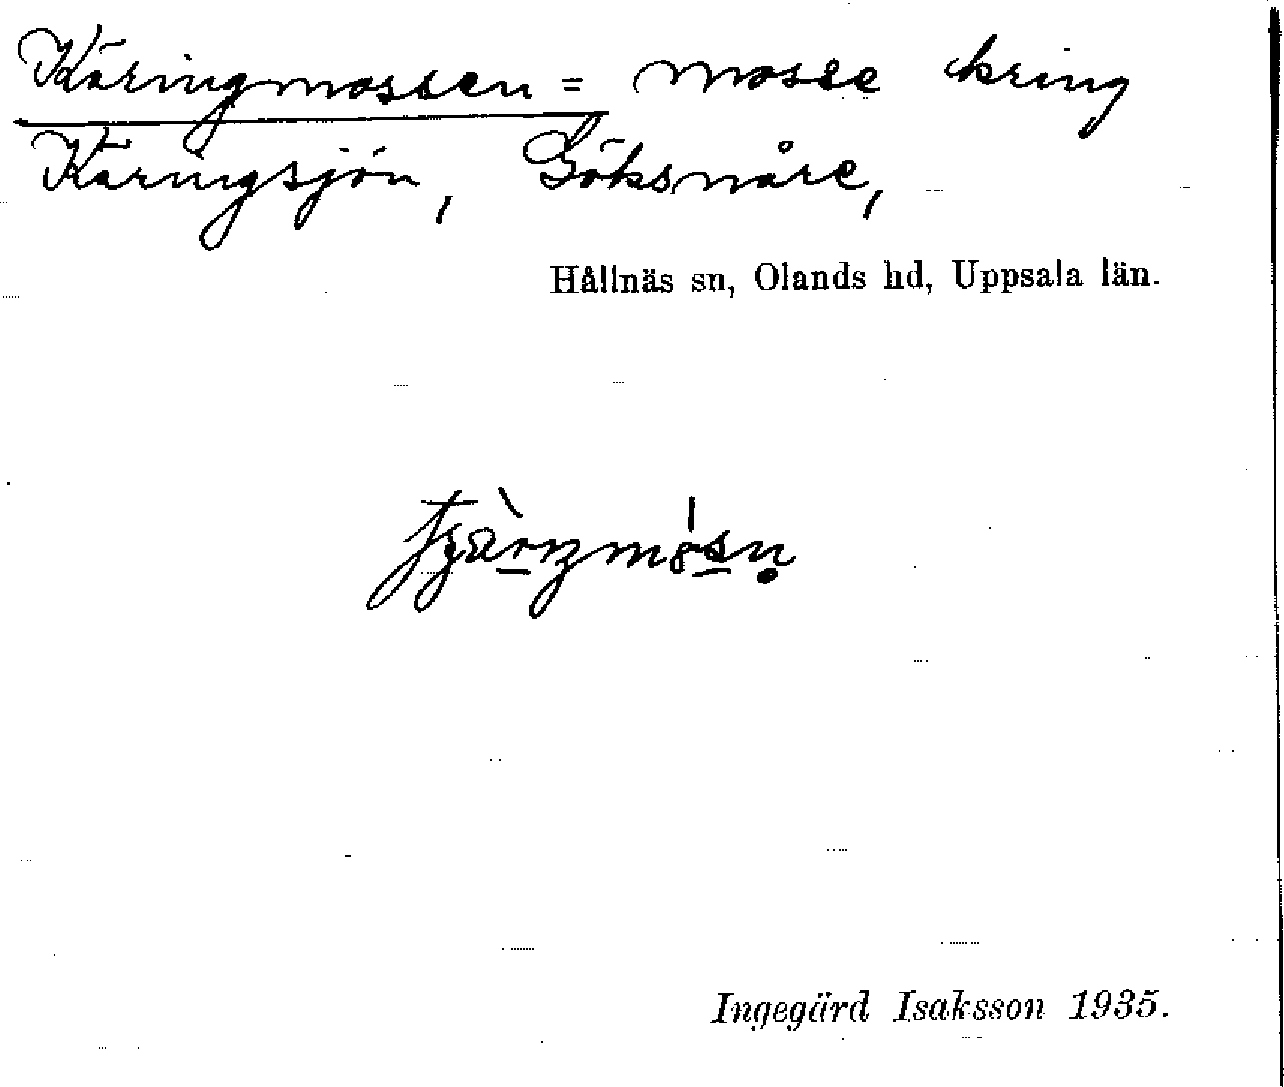 Käringmossen = mosse kring
Käringsjön, Göksnåre,
Hållnäs sn, Olands hd, Uppsala län.
Ingegärd Isaksson 1935.